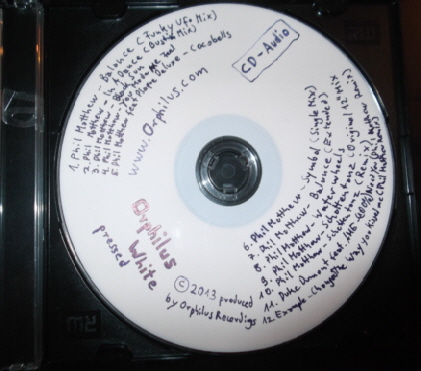 1. Phil Matthew - Balance (Funky Ufo Mix)
2. Phil Matthew - In A Dance (Dusha Mix)
3. Phil Matthew - Black Sun
4. Phil Matthew - You Made Me Feel
5. Phil Matthew feat Plopre Deluxe - Cocobolls
CD-Audio
www.Orphilus.com
Orphilus
White
pressed
© 2013 produced
by Orphilus Recordigs
6. Phil Matthew - Symbol (Single Mix)
7. Phil Matthew - Badance (Extended)
8. Phil Matthew - Waterwheels
9. Phil Matthew - Schattentanz (Original 12" Mix
10. Phil Matthew - Schattentanz
11. Duke Dumont feat. A*M*E - Need U
12. Example - Changed the way you kissed me (Phil Matthew